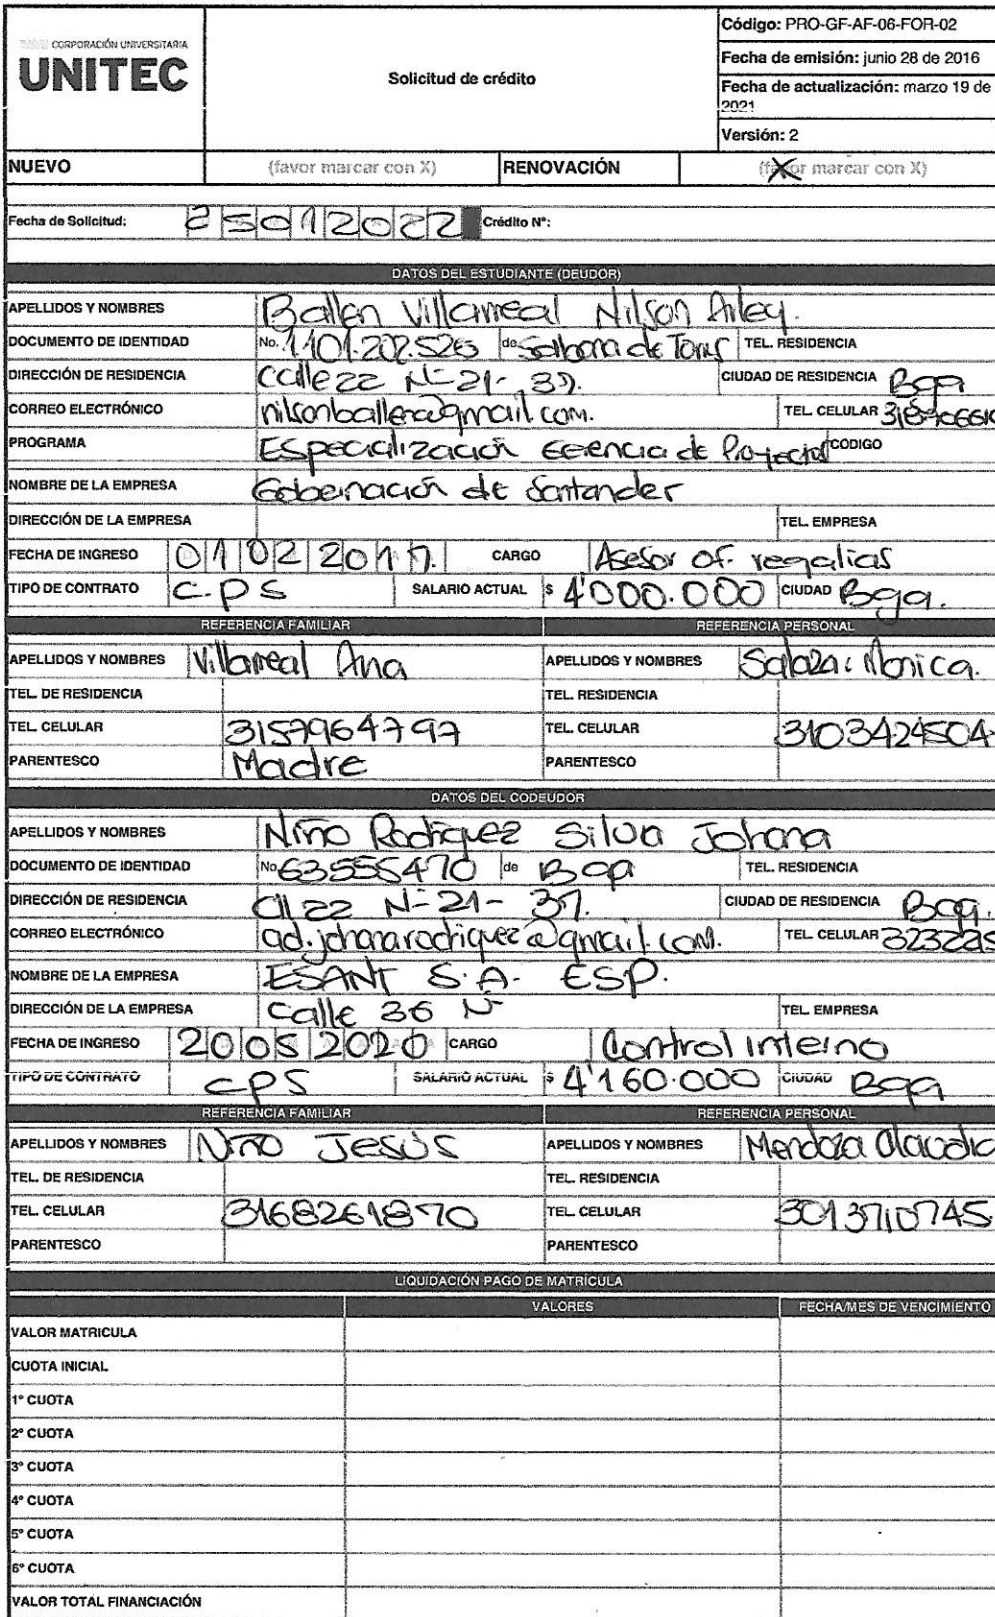 CORPORACIÓN UNIVERSITARIA
UNITEC
Solicitud de crédito
Código: PRO-GF-AF-06-FOR-02
Fecha de emisión: junio 28 de 2016
Fecha de actualización: marzo 19 de 2021
Versión: 2
NUEVO (favor marcar con X) RENOVACIÓN (favor marcar con X) X
Fecha de Solicitud: 25012022 Crédito N°:
DATOS DEL ESTUDIANTE (DEUDOR)
APELLIDOS Y NOMBRES Ballen Villarreal Nilson Arley.
DOCUMENTO DE IDENTIDAD No. 1.101.202.526 de Sabana de Torres TEL. RESIDENCIA
DIRECCIÓN DE RESIDENCIA calle 22 N- 21- 37. CIUDAD DE RESIDENCIA Bga
CORREO ELECTRÓNICO nilsonballen@gmail.com. TEL. CELULAR
PROGRAMA Especialización Gerencia de Proyectos CODIGO
NOMBRE DE LA EMPRESA Gobernación de Santander
DIRECCIÓN DE LA EMPRESA TEL. EMPRESA
FECHA DE INGRESO 01 02 2017. CARGO Asesor of. regalias
TIPO DE CONTRATO C.PS SALARIO ACTUAL $ 4'000.000 CIUDAD Bga.
REFERENCIA FAMILIAR REFERENCIA PERSONAL
APELLIDOS Y NOMBRES Villarreal Ana APELLIDOS Y NOMBRES Salazar Monica.
TEL. DE RESIDENCIA TEL. RESIDENCIA
TEL. CELULAR 3157964797 TEL. CELULAR 3103424504
PARENTESCO Madre PARENTESCO
DATOS DEL CODEUDOR
APELLIDOS Y NOMBRES Niño Rodriguez Silva Johana
DOCUMENTO DE IDENTIDAD No. 63555470 de Bga TEL. RESIDENCIA
DIRECCIÓN DE RESIDENCIA Cll 22 N- 21- 37. CIUDAD DE RESIDENCIA Bga.
CORREO ELECTRÓNICO ad.johanarodriguez@gmail.com. TEL. CELULAR
NOMBRE DE LA EMPRESA ESANT S.A. ESP.
DIRECCIÓN DE LA EMPRESA Calle 36 N- TEL. EMPRESA
FECHA DE INGRESO 20 05 2020 CARGO Control interno
TIPO DE CONTRATO CPS SALARIO ACTUAL $ 4'160.000 CIUDAD Bga
REFERENCIA FAMILIAR REFERENCIA PERSONAL
APELLIDOS Y NOMBRES Niño Jesús APELLIDOS Y NOMBRES Mendoza Claudia
TEL. DE RESIDENCIA TEL. RESIDENCIA
TEL. CELULAR 3168261870 TEL. CELULAR 3013710745
PARENTESCO PARENTESCO
LIQUIDACIÓN PAGO DE MATRÍCULA
VALORES FECHA/MES DE VENCIMIENTO
VALOR MATRICULA
CUOTA INICIAL
1° CUOTA
2° CUOTA
3° CUOTA
4° CUOTA
5° CUOTA
6° CUOTA
VALOR TOTAL FINANCIACIÓN